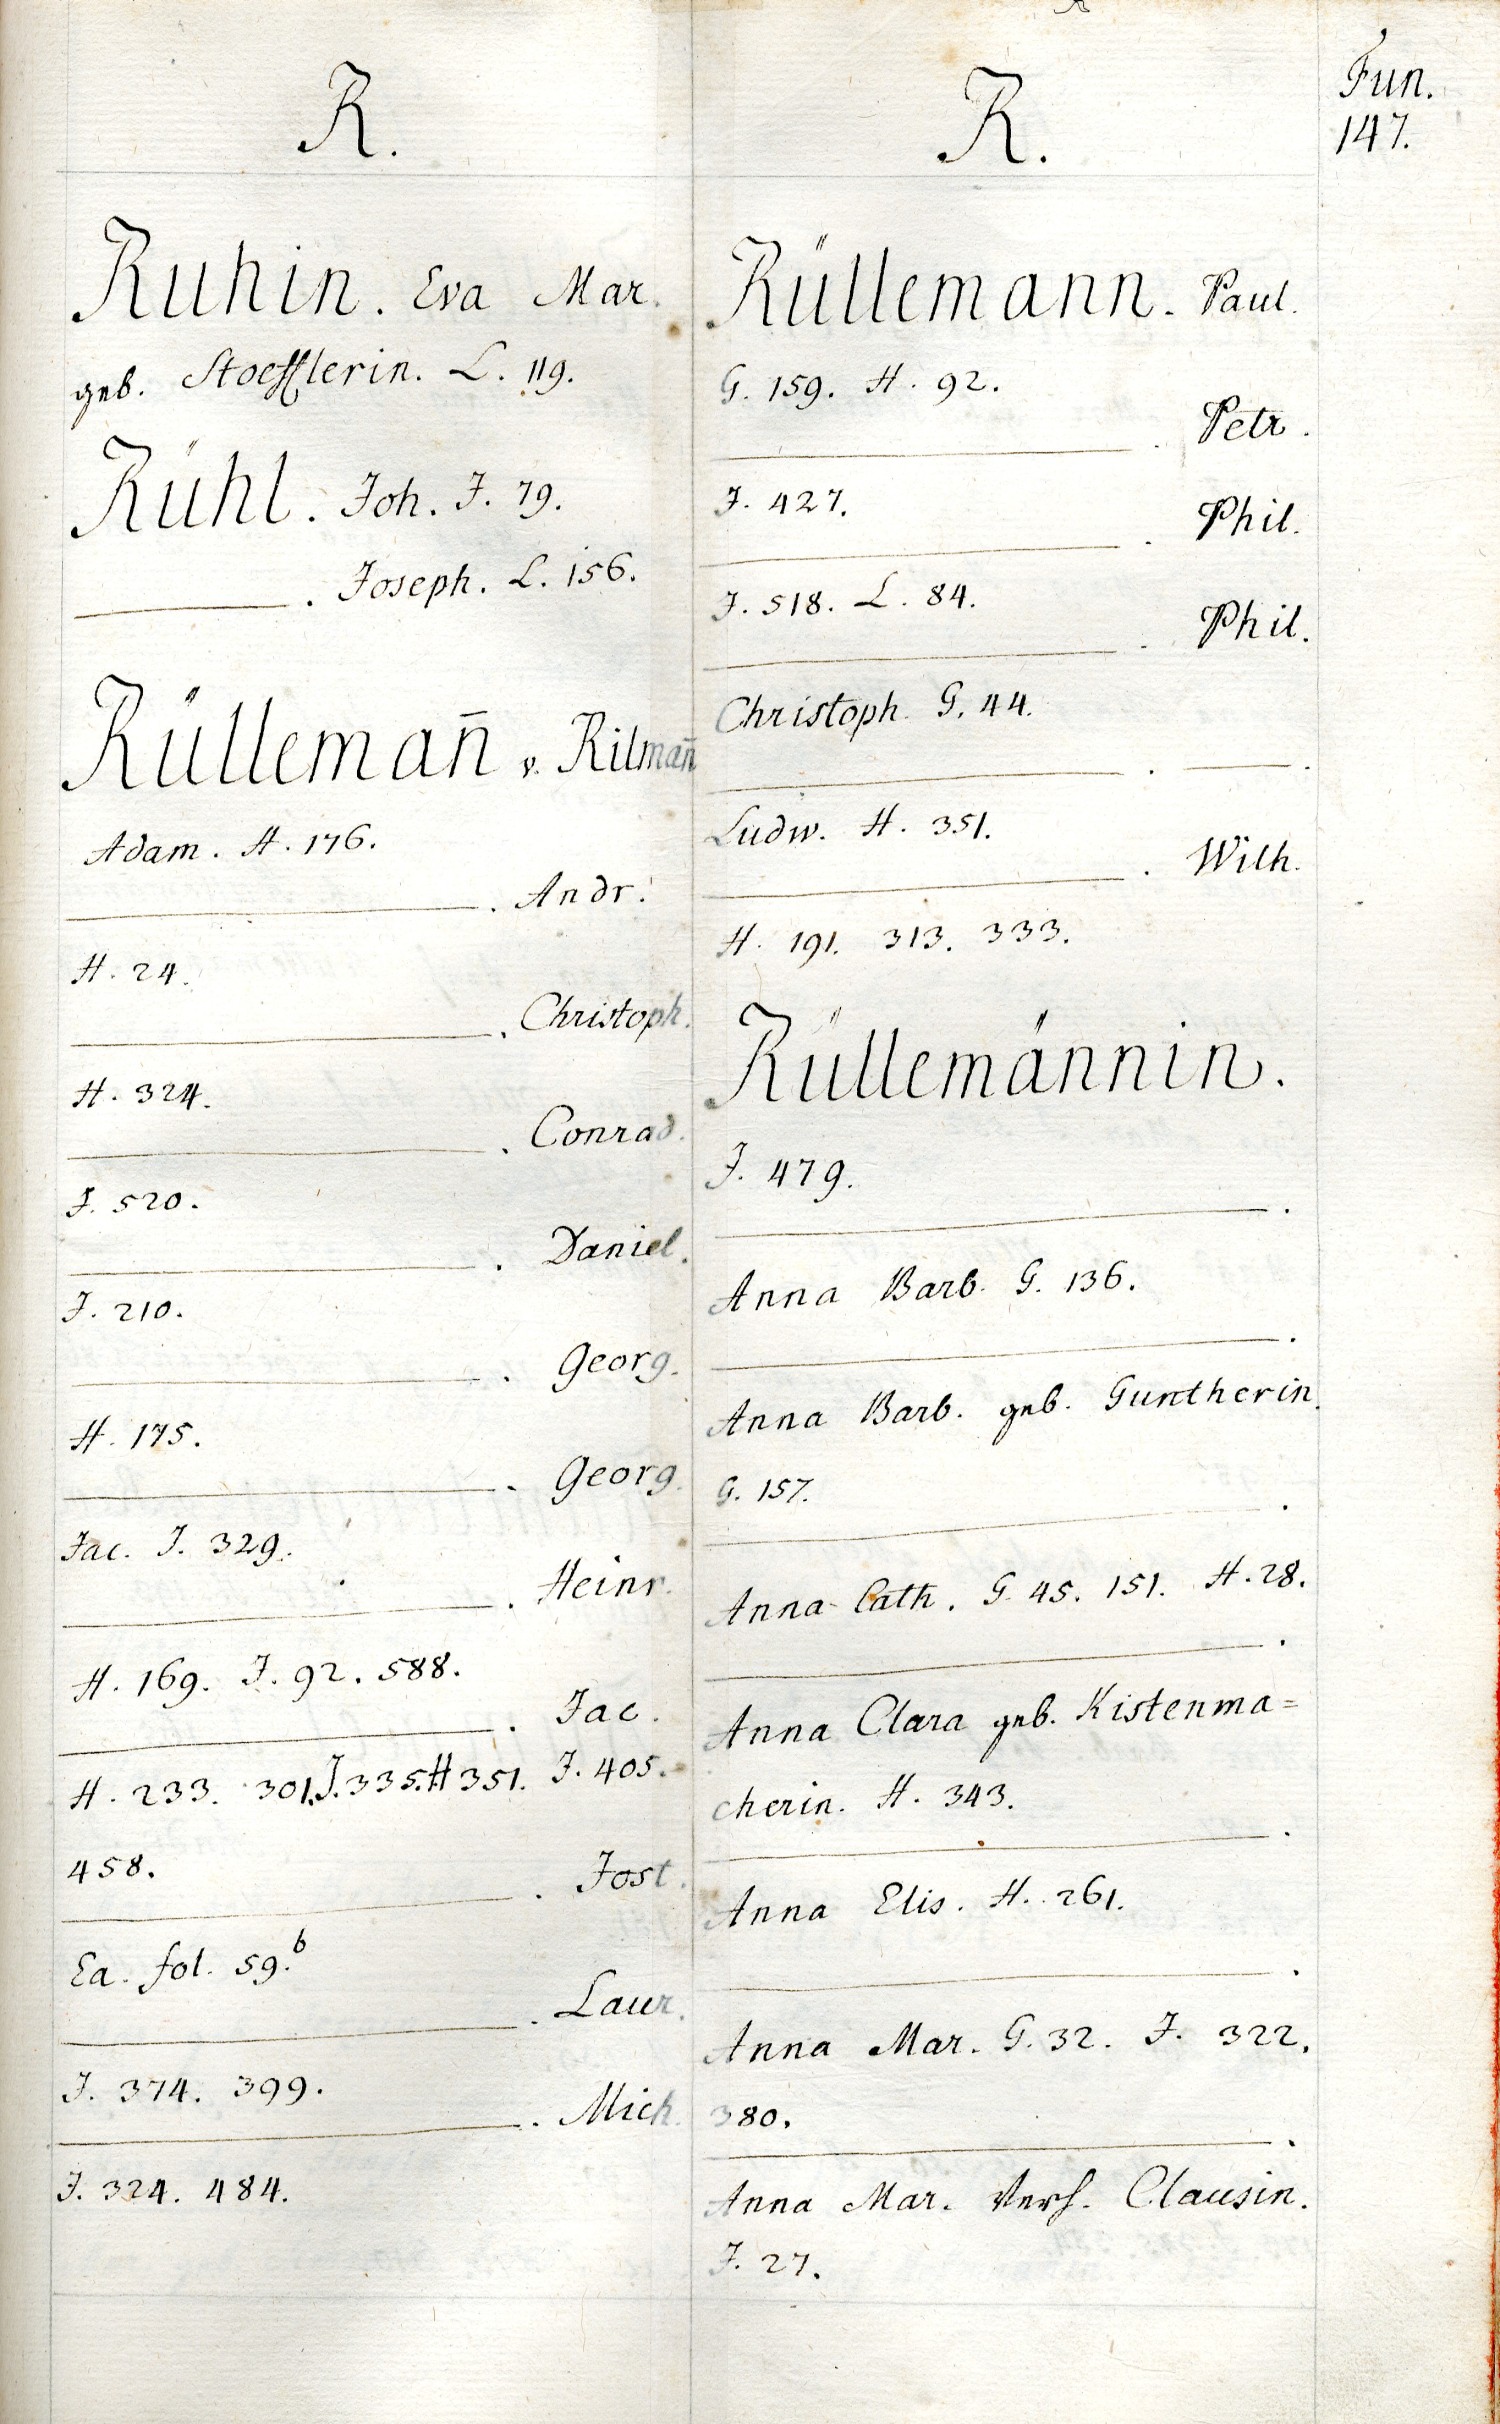 R.
Ruhin. Eva Mar.
geb. Stoefflerin. L. 119.
Rühl. Joh. J. 79.
———. Joseph. L. 156.
Rüllemañ v. Rilmañ
Adam. H. 176.
———. Andr.
H. 24.
———. Christoph.
H. 324.
———. Conrad.
J. 520.
———. Daniel.
J. 210.
———. Georg.
H. 175.
———. Georg.
Jac. J. 329.
———. Heinr.
H. 169. J. 92. 588.
———. Jac.
H. 233. 301. J. 335. H 351. J. 405.
458.
———. Jost.
Ea. fol. 59.b
———. Laur.
J. 374. 399.
———. Mich.
J. 324. 484.
R.
Rüllemann. Paul.
G. 159. H. 92.
———. Petr.
J. 427.
———. Phil.
J. 518. L. 84.
———. Phil.
Christoph. G. 44.
———. ———.
Ludw. H. 351.
———. Wilh.
H. 191. 313. 333.
Rüllemännin.
J. 479.
———.
Anna Barb. G. 136.
———.
Anna Barb. geb. Guntherin.
G. 157.
———.
Anna Cath. G. 45. 151. H. 28.
———.
Anna Clara geb. Kistenma=
cherin. H. 343.
———.
Anna Elis. H. 261.
———.
Anna Mar. G. 32. J. 322.
380.
———.
Anna Mar. Verh. Clausin.
J. 27.
Fun.
147.